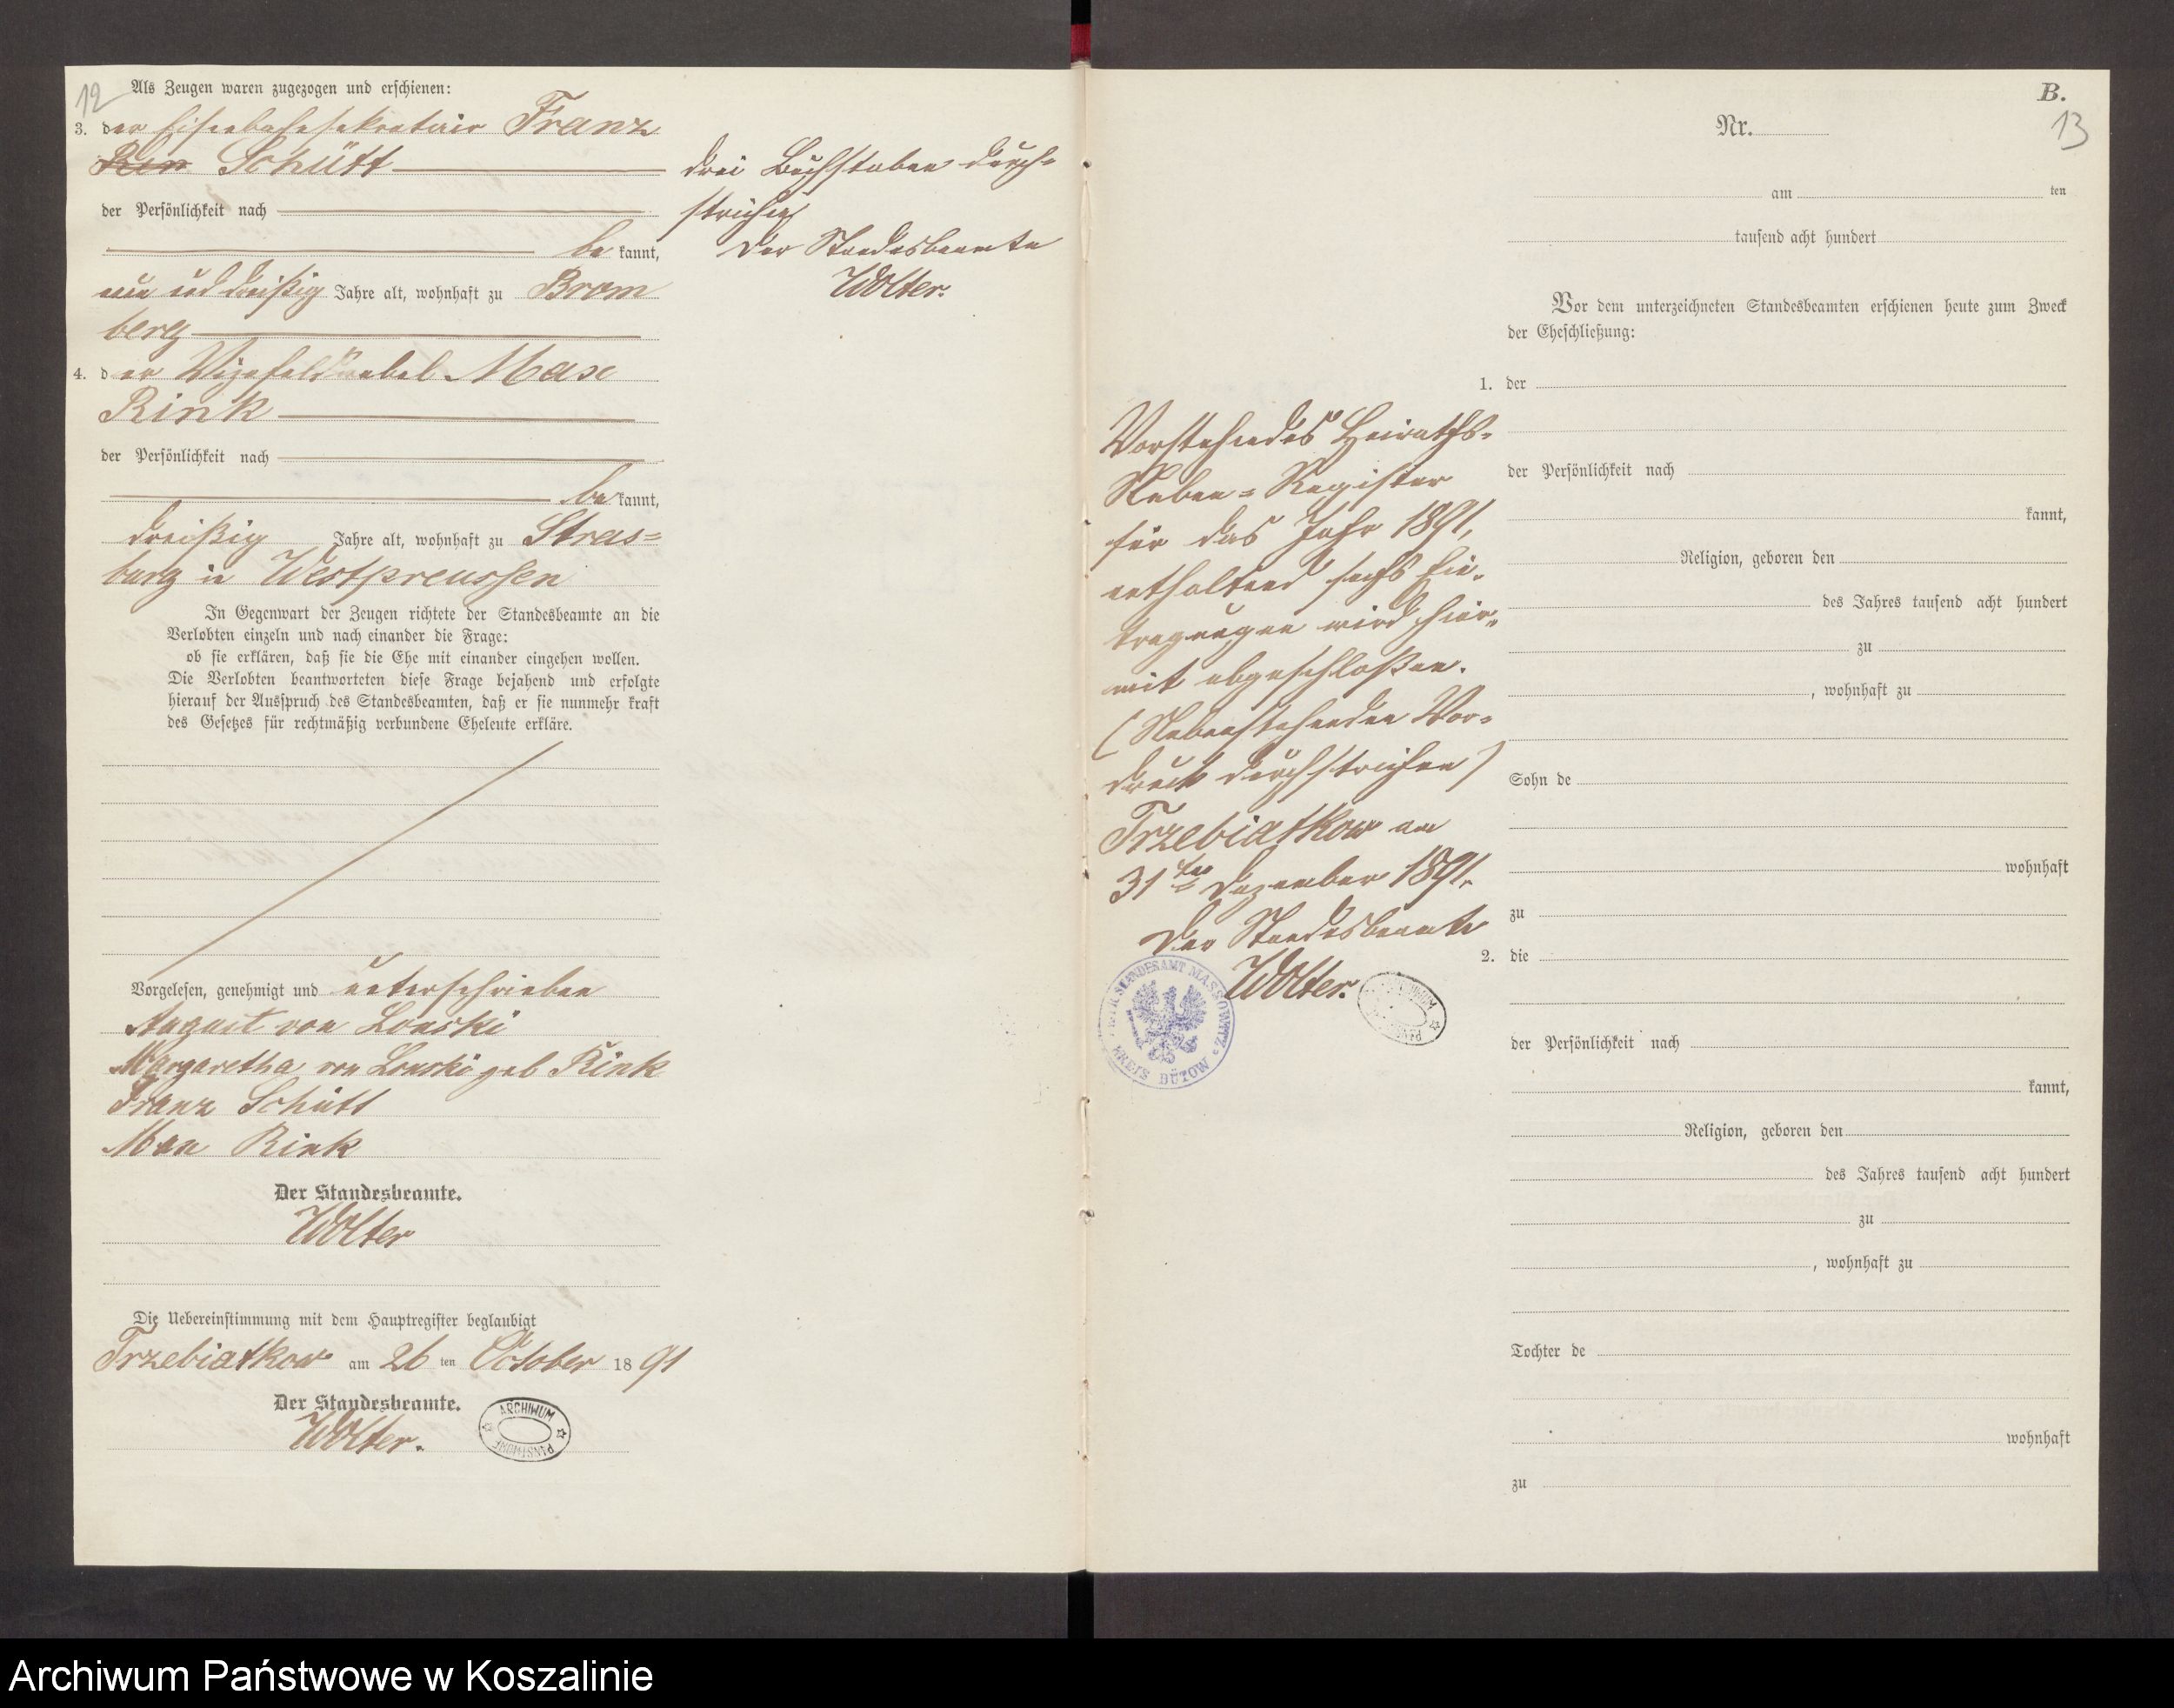 12
Als Zeugen waren zugezogen und erschienen:
3. der Eisenbahnsekretair Franz
Rin Schütt
der Persönlichkeit nach
be kannt,
neun und dreißig Jahre alt, wohnhaft zu Brom
berg
4. der Vizefeldwebel Max
Rink
der Persönlichkeit nach
be kannt,
dreißig Jahre alt, wohnhaft zu Stras=
burg in Westpreussen
In Gegenwart der Zeugen richtete der Standesbeamte an die
Verlobten einzeln und nach einander die Frage:
ob sie erklären, daß sie die Ehe mit einander eingehen wollen.
Die Verlobten beantworteten diese Frage bejahend und erfolgte
hierauf der Ausspruch des Standesbeamten, daß er sie nunmehr kraft
des Gesetzes für rechtmäßig verbundene Eheleute erkläre.
Vorgelesen, genehmigt und unterschrieben
August von Lonski
Margaretha von Lonski geb Rink
Franz Schütt
Max Rink
Der Standesbeamte.
Wolter
Die Uebereinstimmung mit dem Hauptregister beglaubigt
Trzebiatkow am 26 ten October 18 91
Der Standesbeamte.
Wolter.
ARCHIWUM
PAŃSTWOWE
drei Buchstaben durch=
strichen
Der Standesbeamte
Wolter.
Vorstehendes Heiraths=
Neben=Register
für das Jahr 1891,
enthaltend sechs Ein=
tragungen wird hier=
mit abgeschloßen.
(Nebenstehenden Vor=
druck durchstrichen)
Trzebiatkow am
31ten Dezember 1891.
Der Standesbeamte
Wolter.
STANDESAMT MASSOWITZ
KREIS BÜTOW
ARCHIWUM
PAŃSTWOWE
B.
13
Nr.
am ten
tausend acht hundert
Vor dem unterzeichneten Standesbeamten erschienen heute zum Zweck
der Eheschließung:
1. der
der Persönlichkeit nach
kannt,
Religion, geboren den
des Jahres tausend acht hundert
zu
, wohnhaft zu
Sohn de
wohnhaft
zu
2. die
der Persönlichkeit nach
kannt,
Religion, geboren den
des Jahres tausend acht hundert
zu
, wohnhaft zu
Tochter de
wohnhaft
zu
Archiwum Państwowe w Koszalinie